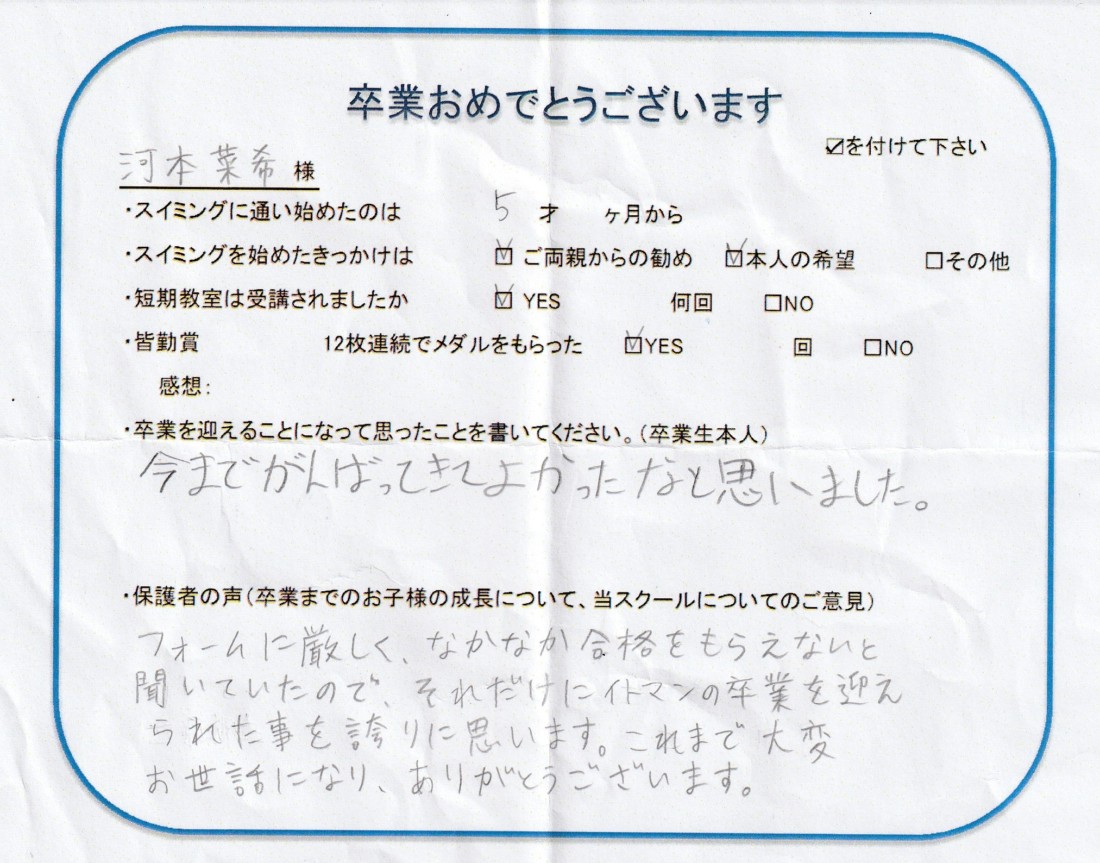 卒業おめでとうございます
☑を付けて下さい
河本菜希 様
・スイミングに通い始めたのは 5 才 ヶ月から
・スイミングを始めたきっかけは ☑ ご両親からの勧め ☑本人の希望 □その他
・短期教室は受講されましたか ☑ YES 何回 □NO
・皆勤賞 12枚連続でメダルをもらった ☑YES 回 □NO
感想:
・卒業を迎えることになって思ったことを書いてください。(卒業生本人)
今までがんばってきてよかったなと思いました。
・保護者の声(卒業までのお子様の成長について、当スクールについてのご意見)
フォームに厳しく、なかなか合格をもらえないと
聞いていたので、それだけにイトマンの卒業を迎え
られた事を誇りに思います。これまで大変
お世話になり、ありがとうございます。